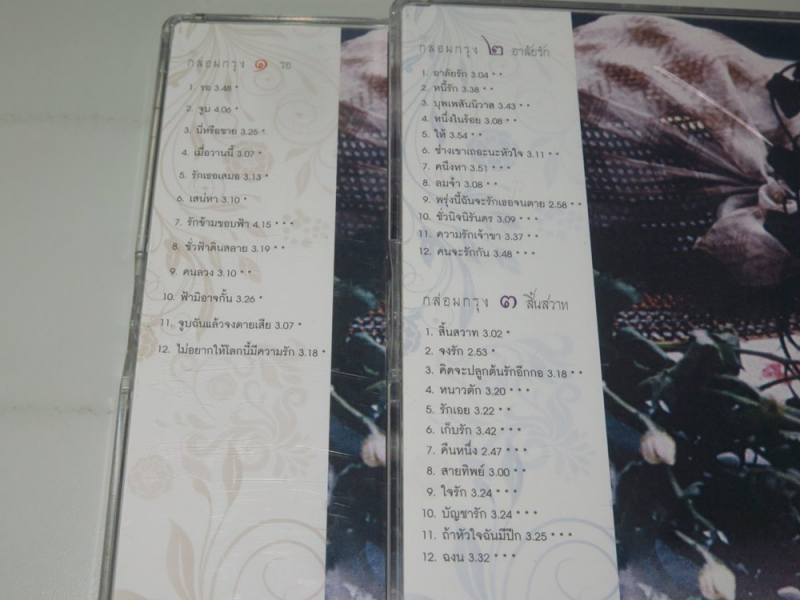 กล่อมกรุง ๑ รอ
1. รอ 3.48 *
2. จูบ 4.06 *
3. นี่หรือชาย 3.25 *
4. เมื่อวานนี้ 3.07 *
5. รักเธอเสมอ 3.13 *
6. เสน่หา 3.10 *
7. รักข้ามขอบฟ้า 4.15 * * *
8. ชั่วฟ้าดินสลาย 3.19 * *
9. คนลวง 3.10 * *
10. ฟ้ามิอาจกั้น 3.26 *
11. จูบฉันแล้วจงตายเสีย 3.07 *
12. ไม่อยากให้โลกนี้มีความรัก 3.18 *
กล่อมกรุง ๒ อาลัยรัก
1. อาลัยรัก 3.04 * *
2. หนี้รัก 3.38 * *
3. บุพเพสันนิวาส 3.43 * *
4. หนึ่งในร้อย 3.08 * *
5. ให้ 3.54 * *
6. ช่างเขาเถอะนะหัวใจ 3.11 * *
7. คนึงหา 3.51 * * *
8. ลมจ๋า 3.08 * *
9. พรุ่งนี้ฉันจะรักเธอจนตาย 2.58 * *
10. ชั่วนิจนิรันดร 3.09 * * *
11. ความรักเจ้าขา 3.37 * *
12. คนจะรักกัน 3.48 * * *
กล่อมกรุง ๓ สิ้นสวาท
1. สิ้นสวาท 3.02 *
2. จงรัก 2.53 *
3. คิดจะปลูกต้นรักอีกกอ 3.18 * *
4. หนาวตัก 3.20 * * *
5. รักเอย 3.22 * *
6. เก็บรัก 3.42 * * *
7. คืนหนึ่ง 2.47 * * *
8. สายทิพย์ 3.00 * *
9. ใจรัก 3.24 * * *
10. บัญชารัก 3.24 * * *
11. ถ้าหัวใจฉันมีปีก 3.25 * * *
12. ฉงน 3.32 * * *